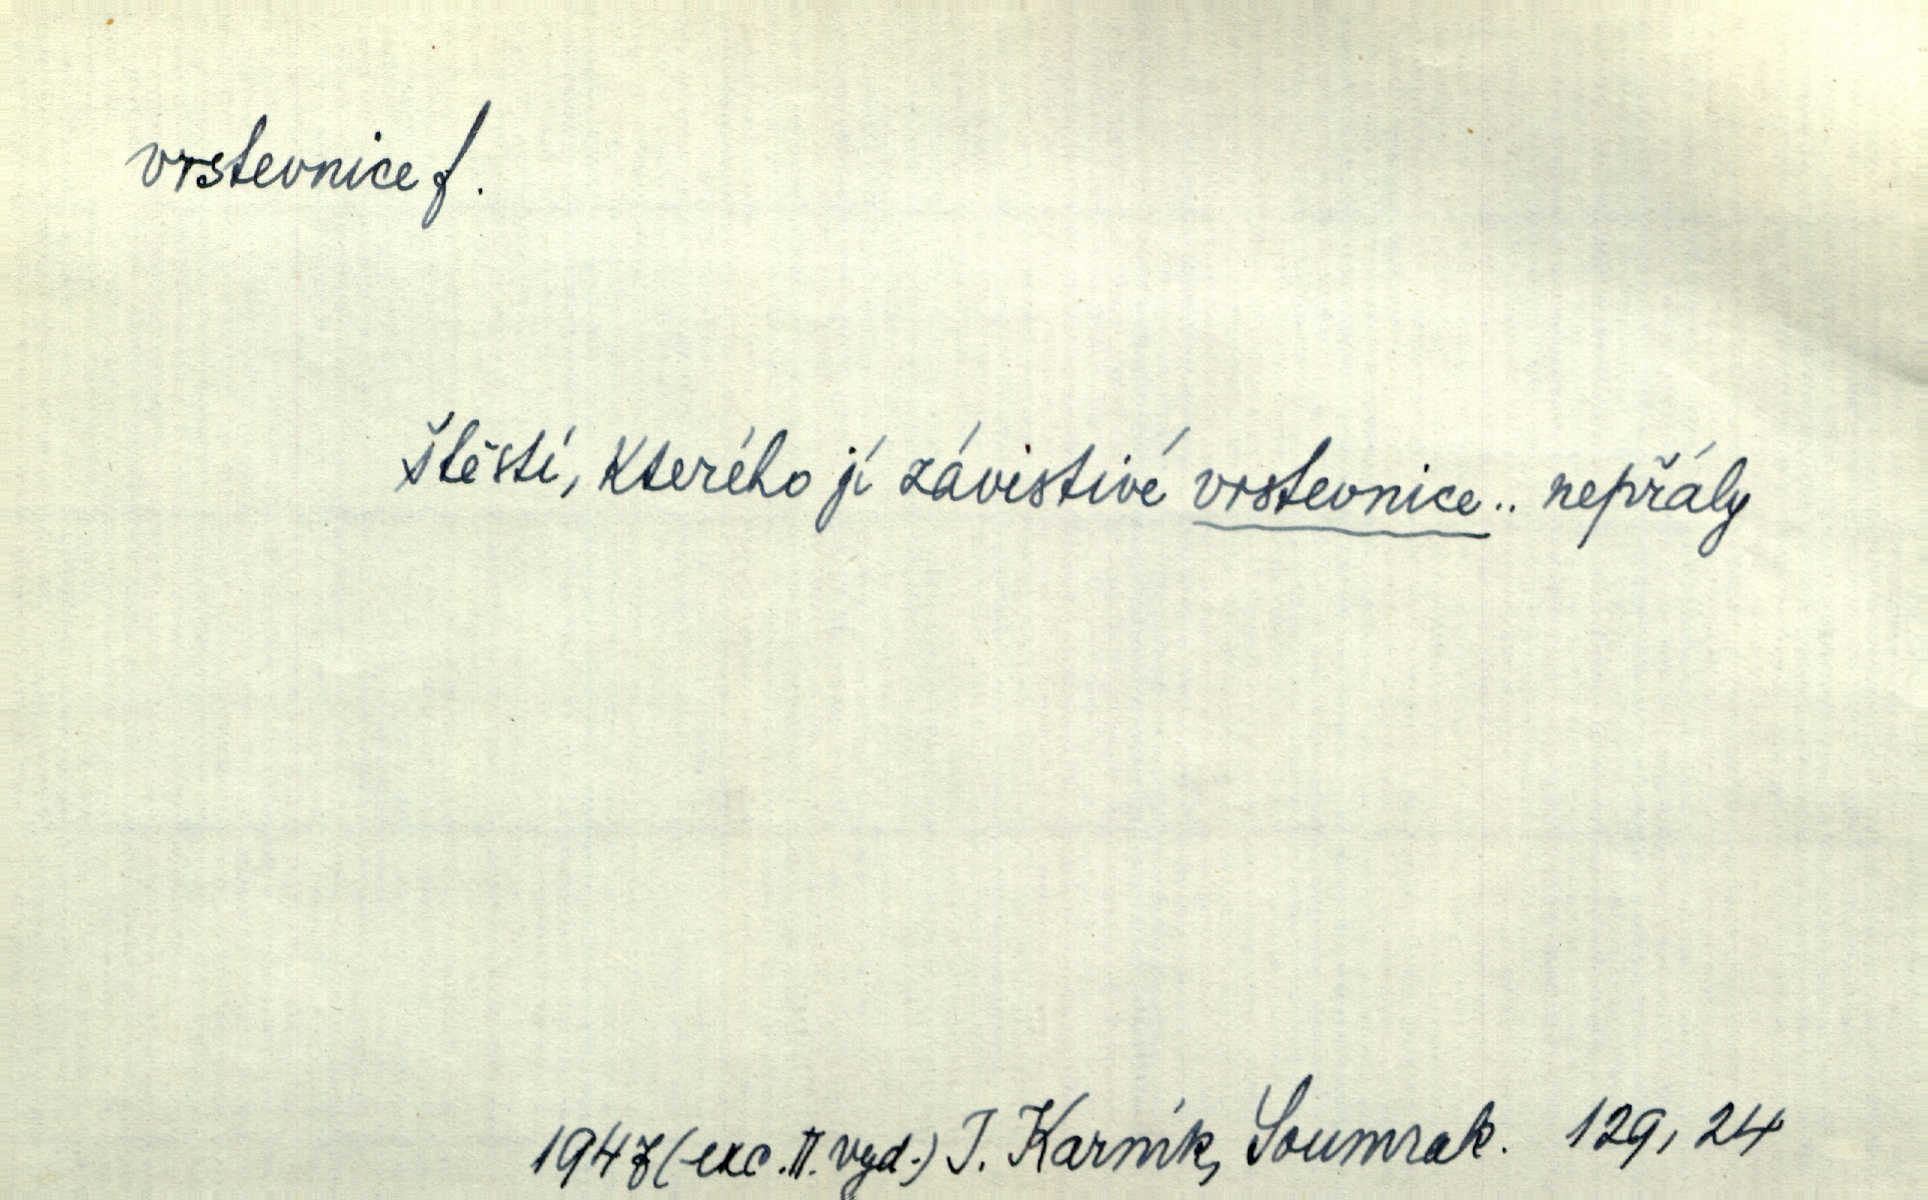 vrstevnice f.
štěstí, kterého jí závistivé vrstevnice.. nepřály
1947 (exc. II. vyd.) J. Karník, Soumrak. 129, 24